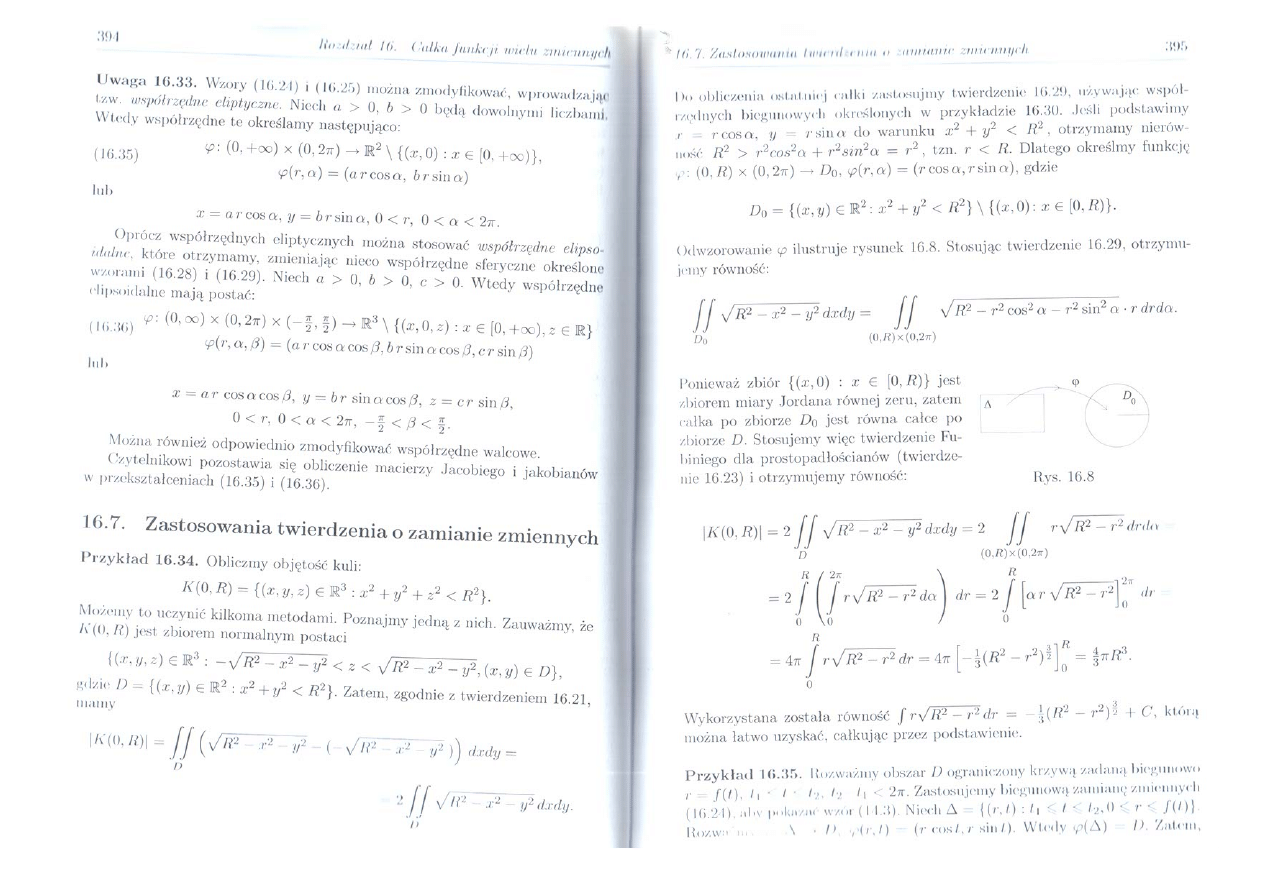 394
Rozdział 16. Całka funkcji wielu zmiennych
Uwaga 16.33. Wzory (16.24) i (16.25) można zmodyfikować, wprowadzając
tzw. współrzędne eliptyczne. Niech a > 0, b > 0 będą dowolnymi liczbami.
Wtedy współrzędne te określamy następująco:
(16.35) φ: (0, +∞) × (0, 2π) → ℝ² \ {(x, 0) : x ∈ [0, +∞)},
φ(r, α) = (a r cos α, b r sin α)
lub
x = a r cos α, y = b r sin α, 0 < r, 0 < α < 2π.
Oprócz współrzędnych eliptycznych można stosować współrzędne elipso-
idalne, które otrzymamy, zmieniając nieco współrzędne sferyczne określone
wzorami (16.28) i (16.29). Niech a > 0, b > 0, c > 0. Wtedy współrzędne
elipsoidalne mają postać:
(16.36) φ: (0, ∞) × (0, 2π) × (−π/2, π/2) → ℝ³ \ {(x, 0, z) : x ∈ [0, +∞), z ∈ ℝ}
φ(r, α, β) = (a r cos α cos β, b r sin α cos β, c r sin β)
lub
x = a r cos α cos β, y = b r sin α cos β, z = c r sin β,
0 < r, 0 < α < 2π, −π/2 < β < π/2.
Można również odpowiednio zmodyfikować współrzędne walcowe.
Czytelnikowi pozostawia się obliczenie macierzy Jacobiego i jakobianów
w przekształceniach (16.35) i (16.36).
16.7. Zastosowania twierdzenia o zamianie zmiennych
Przykład 16.34. Obliczmy objętość kuli:
K(0, R) = {(x, y, z) ∈ ℝ³ : x² + y² + z² < R²}.
Możemy to uczynić kilkoma metodami. Poznajmy jedną z nich. Zauważmy, że
K(0, R) jest zbiorem normalnym postaci
{(x, y, z) ∈ ℝ³ : −√(R² − x² − y²) < z < √(R² − x² − y²), (x, y) ∈ D},
gdzie D = {(x, y) ∈ ℝ² : x² + y² < R²}. Zatem, zgodnie z twierdzeniem 16.21,
mamy
|K(0, R)| = ∬_D (√(R² − x² − y²) − (−√(R² − x² − y²))) dxdy =
2 ∬_D √(R² − x² − y²) dxdy.
16.7. Zastosowania twierdzenia o zamianie zmiennych
395
Do obliczenia ostatniej całki zastosujmy twierdzenie 16.29, używając współ-
rzędnych biegunowych określonych w przykładzie 16.30. Jeśli podstawimy
x = r cos α, y = r sin α do warunku x² + y² < R², otrzymamy nierów-
ność R² > r²cos²α + r²sin²α = r², tzn. r < R. Dlatego określmy funkcję
φ: (0, R) × (0, 2π) → D₀, φ(r, α) = (r cos α, r sin α), gdzie
D₀ = {(x, y) ∈ ℝ² : x² + y² < R²} \ {(x, 0) : x ∈ [0, R)}.
Odwzorowanie φ ilustruje rysunek 16.8. Stosując twierdzenie 16.29, otrzymu-
jemy równość:
∬_{D₀} √(R² − x² − y²) dxdy = ∬_{(0,R)×(0,2π)} √(R² − r² cos² α − r² sin² α) · r drdα.
Ponieważ zbiór {(x, 0) : x ∈ [0, R)} jest
zbiorem miary Jordana równej zeru, zatem
całka po zbiorze D₀ jest równa całce po
zbiorze D. Stosujemy więc twierdzenie Fu-
biniego dla prostopadłościanów (twierdze-
nie 16.23) i otrzymujemy równość:
Δ φ D₀
Rys. 16.8
|K(0, R)| = 2 ∬_D √(R² − x² − y²) dxdy = 2 ∬_{(0,R)×(0,2π)} r√(R² − r²) drdα
= 2 ∫₀^R (∫₀^{2π} r√(R² − r²) dα) dr = 2 ∫₀^R [α r √(R² − r²)]₀^{2π} dr
= 4π ∫₀^R r√(R² − r²) dr = 4π [−1/3 (R² − r²)^{3/2}]₀^R = 4/3 πR³.
Wykorzystana została równość ∫ r√(R² − r²) dr = −1/3 (R² − r²)^{3/2} + C, którą
można łatwo uzyskać, całkując przez podstawienie.
Przykład 16.35. Rozważmy obszar D ograniczony krzywą zadaną biegunowo
r = f(t), t₁ < t < t₂, t₂ − t₁ < 2π. Zastosujemy biegunową zamianę zmiennych
(16.24), aby pokazać wzór (14.3). Niech Δ = {(r, t) : t₁ ≤ t ≤ t₂, 0 ≤ r ≤ f(t)}.
φ(r, t) = (r cos t, r sin t). Wtedy φ(Δ) = D. Zatem,